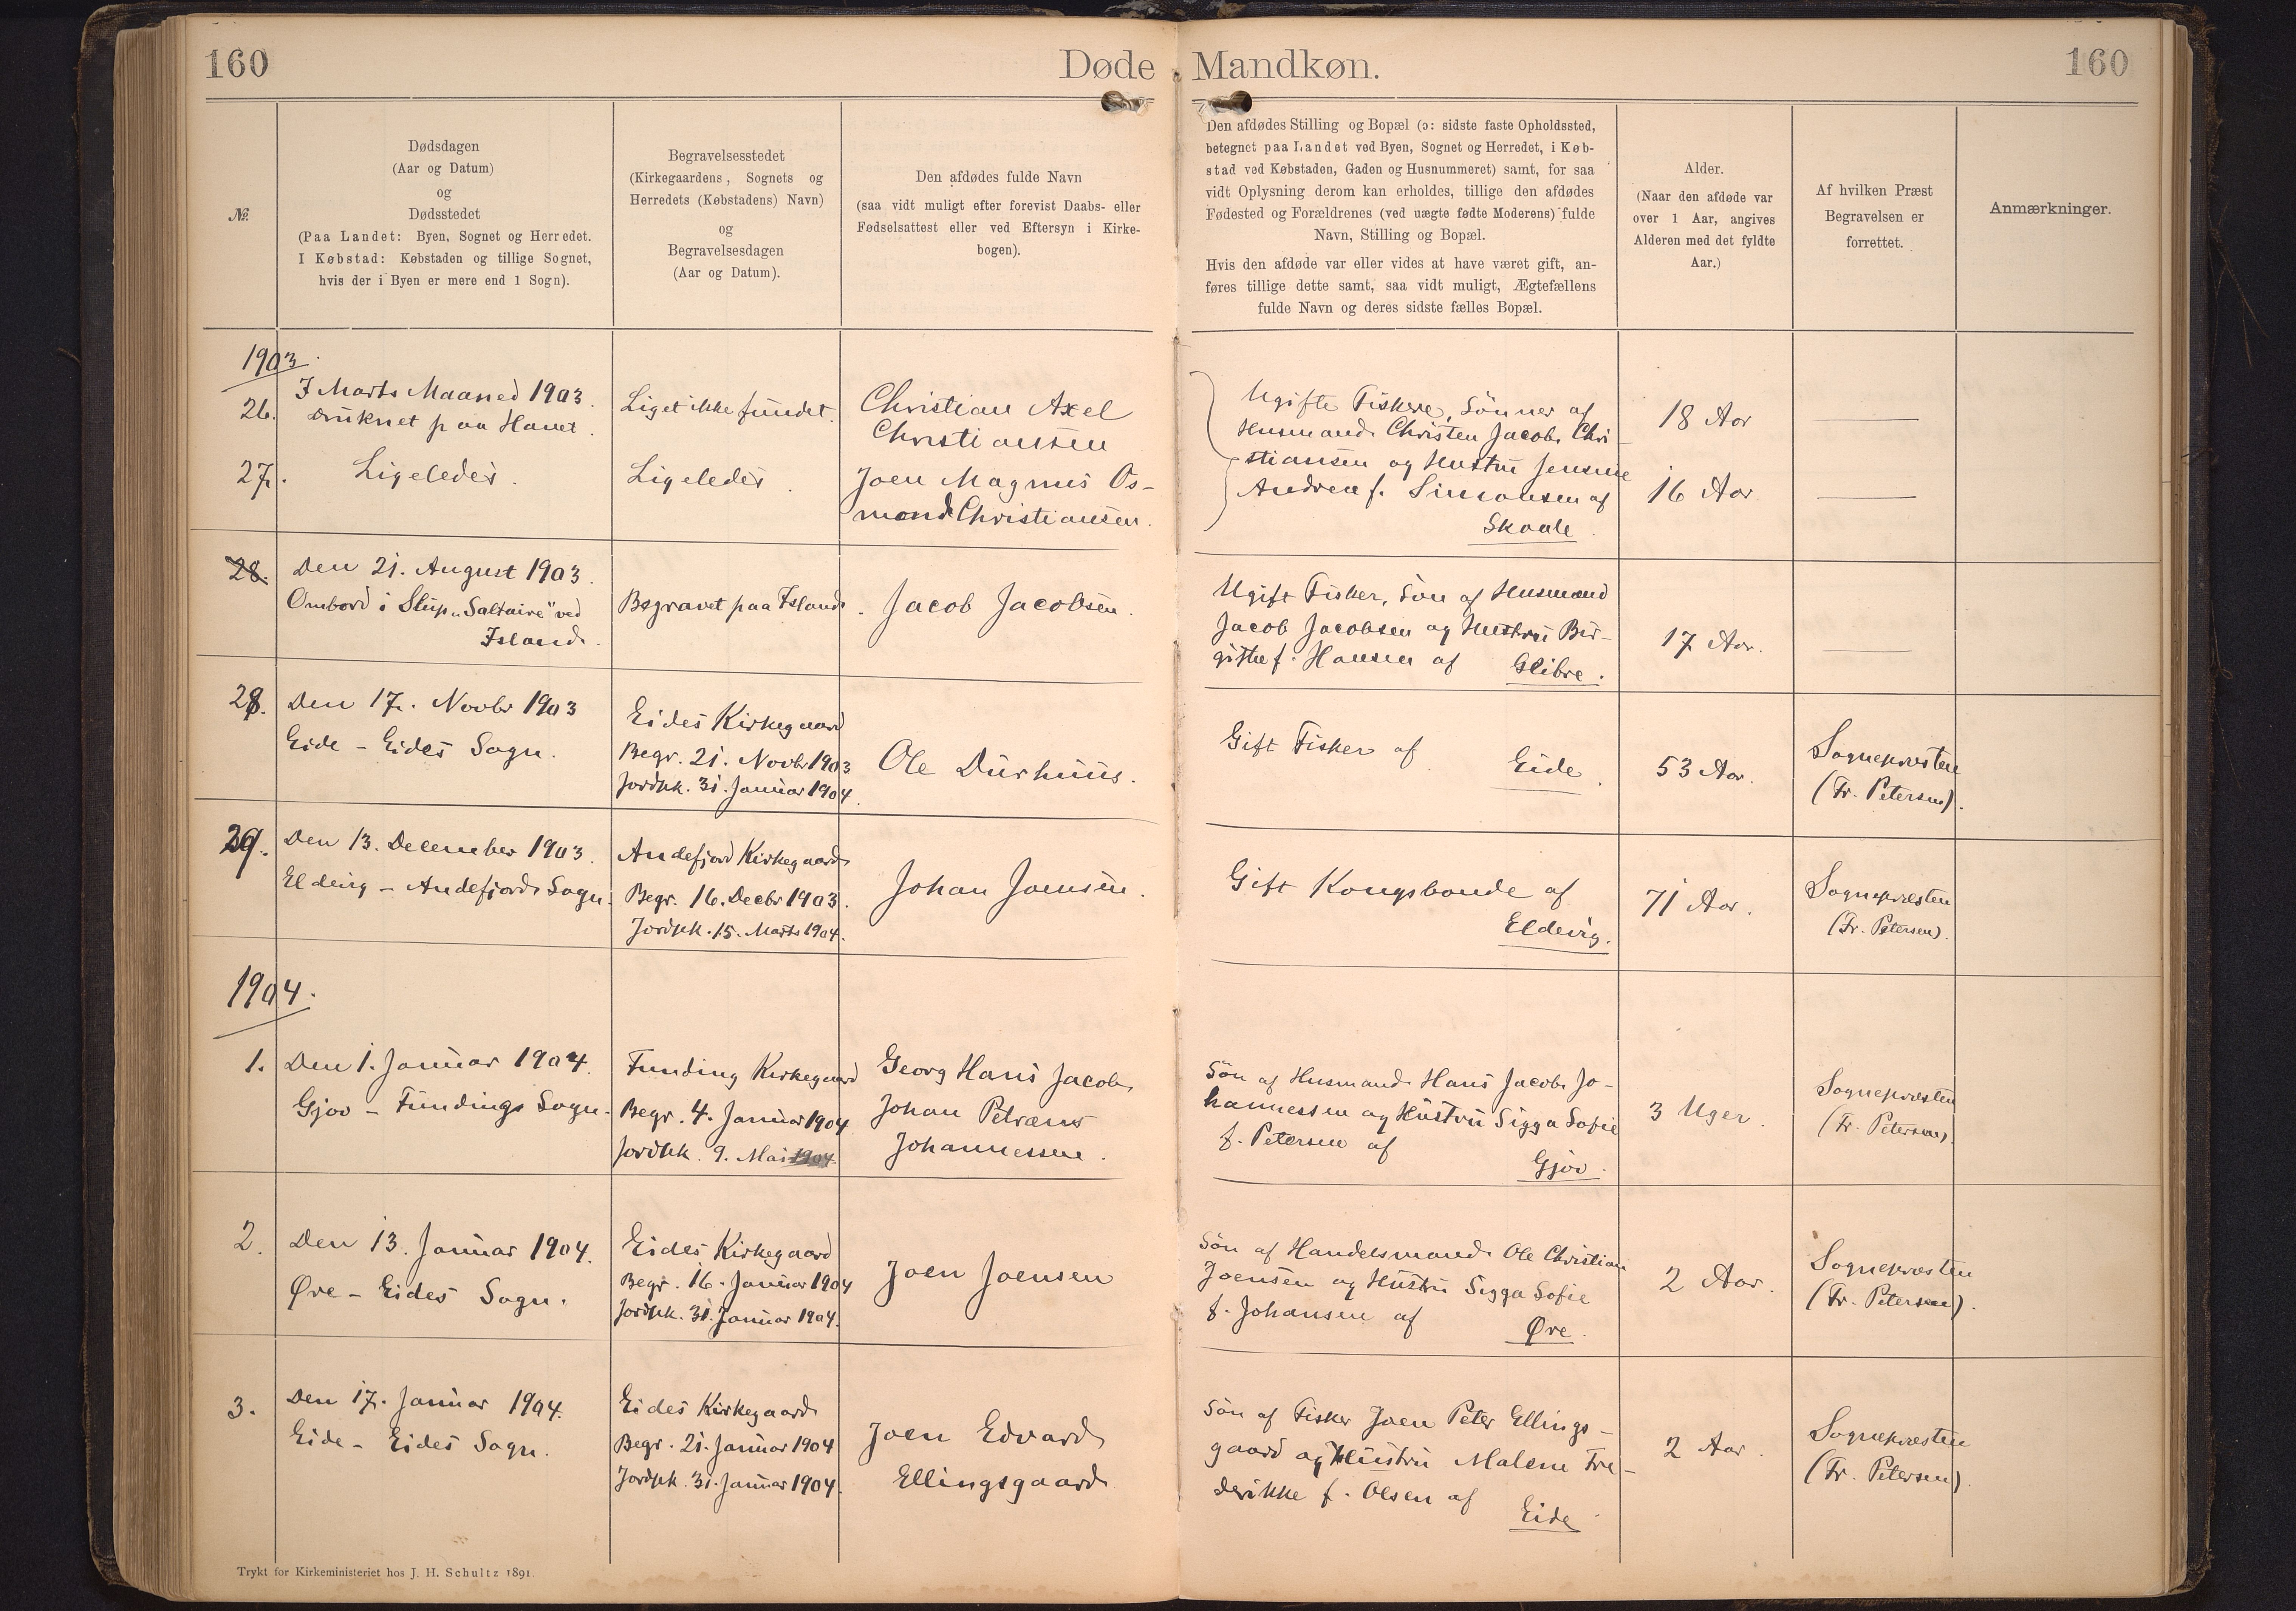 160
Døde Mandkøn.
160
№
Dødsdagen
(Aar og Datum)
og
Dødsstedet
(Paa Landet: Byen, Sognet og Herredet.
I Købstad: Købstaden og tillige Sognet,
hvis der i Byen er mere end 1 Sogn).
Begravelsesstedet
(Kirkegaardens, Sognets og
Herredets (Købstadens) Navn)
og
Begravelsesdagen
(Aar og Datum).
Den afdødes fulde Navn
(saa vidt muligt efter forevist Daabs- eller
Fødselsattest eller ved Eftersyn i Kirke-
bogen).
Den afdødes Stilling og Bopæl (ɔ: sidste faste Opholdssted,
betegnet paa Landet ved Byen, Sognet og Herredet, i Køb-
stad ved Købstaden, Gaden og Husnummeret) samt, for saa
vidt Oplysning derom kan erholdes, tillige den afdødes
Fødested og Forældrenes (ved uægte fødte Moderens) fulde
Navn, Stilling og Bopæl.
Hvis den afdøde var eller vides at have været gift, an-
føres tillige dette samt, saa vidt muligt, Ægtefællens
fulde Navn og deres sidste fælles Bopæl.
Alder.
(Naar den afdøde var
over 1 Aar, angives
Alderen med det fyldte
Aar.)
Af hvilken Præst
Begravelsen er
forrettet.
Anmærkninger.
1903.
26.
I Marts Maaned 1903.
druknet paa Havet.
Liget ikke fundet.
Christian Axel
Christiansen
Ugifte Fiskere, Sönner af
Husmand Christen Jacob Chri-
stiansen og Hustru Jensine
Andrea f. Simonsen af
Skaale.
18 Aar
27.
Ligeledes.
Ligeledes.
Joen Magnus Os-
mond Christiansen.
16 Aar
28.
Den 21. August 1903.
Ombord i Slup „Saltaire" ved
Island.
Begravet paa Island.
Jacob Jacobsen.
Ugift Fisker, Sön af Husmand
Jacob Jacobsen og Hustru Bir-
githe f. Hansen af Glibre.
17 Aar.
28.
Den 17. Novbr 1903
Eide - Eides Sogn.
Eides Kirkegaard
Begr. 21. Novbr 1903
Jordpk. 31. Januar 1904.
Ole Durhuus.
Gift Fisker af
Eide.
53 Aar.
Sognepræsten
(Fr. Petersen).
29.
Den 13. December 1903.
Eldevig - Andefjord Sogn.
Andefjord Kirkegaard
Begr. 16. Decbr 1903.
Jordpk. 15. Marts 1904.
Johan Joensen.
Gift Kongsbonde af
Eldevig.
71 Aar.
Sognepræsten
(Fr. Petersen).
1904.
1.
Den 1. Januar 1904.
Gjov - Fundings Sogn.
Funding Kirkegaard
Begr. 4. Januar 1904
Jordpk. 9. Mai 1904.
Georg Hans Jacob
Johan Petræus
Johannessen.
Sön af Husmand Hans Jacob Jo-
hannessen og Hustru Sigga Sofie
f. Petersen af
Gjov.
3 Uger.
Sognepræsten
(Fr. Petersen).
2.
Den 13. Januar 1904.
Øre - Eides Sogn.
Eides Kirkegaard
Begr. 16. Januar 1904
Jordpk. 31. Januar 1904.
Joen Joensen
Sön af Handelsmand Ole Christian
Joensen og Hustru Sigga Sofie
f. Johansen af
Øre.
2 Aar.
Sognepræsten
(Fr. Petersen).
3.
Den 17. Januar 1904.
Eide - Eides Sogn.
Eides Kirkegaard
Begr. 21. Januar 1904
Jordpk. 31. Januar 1904.
Joen Edvard
Ellingsgaard
Sön af Fisker Joen Peter Ellings-
gaard og Hustru Malene Fre-
derikke f. Olsen af
Eide
2 Aar.
Sognepræsten
(Fr. Petersen)
Trykt for Kirkeministeriet hos J. H. Schultz 1891.